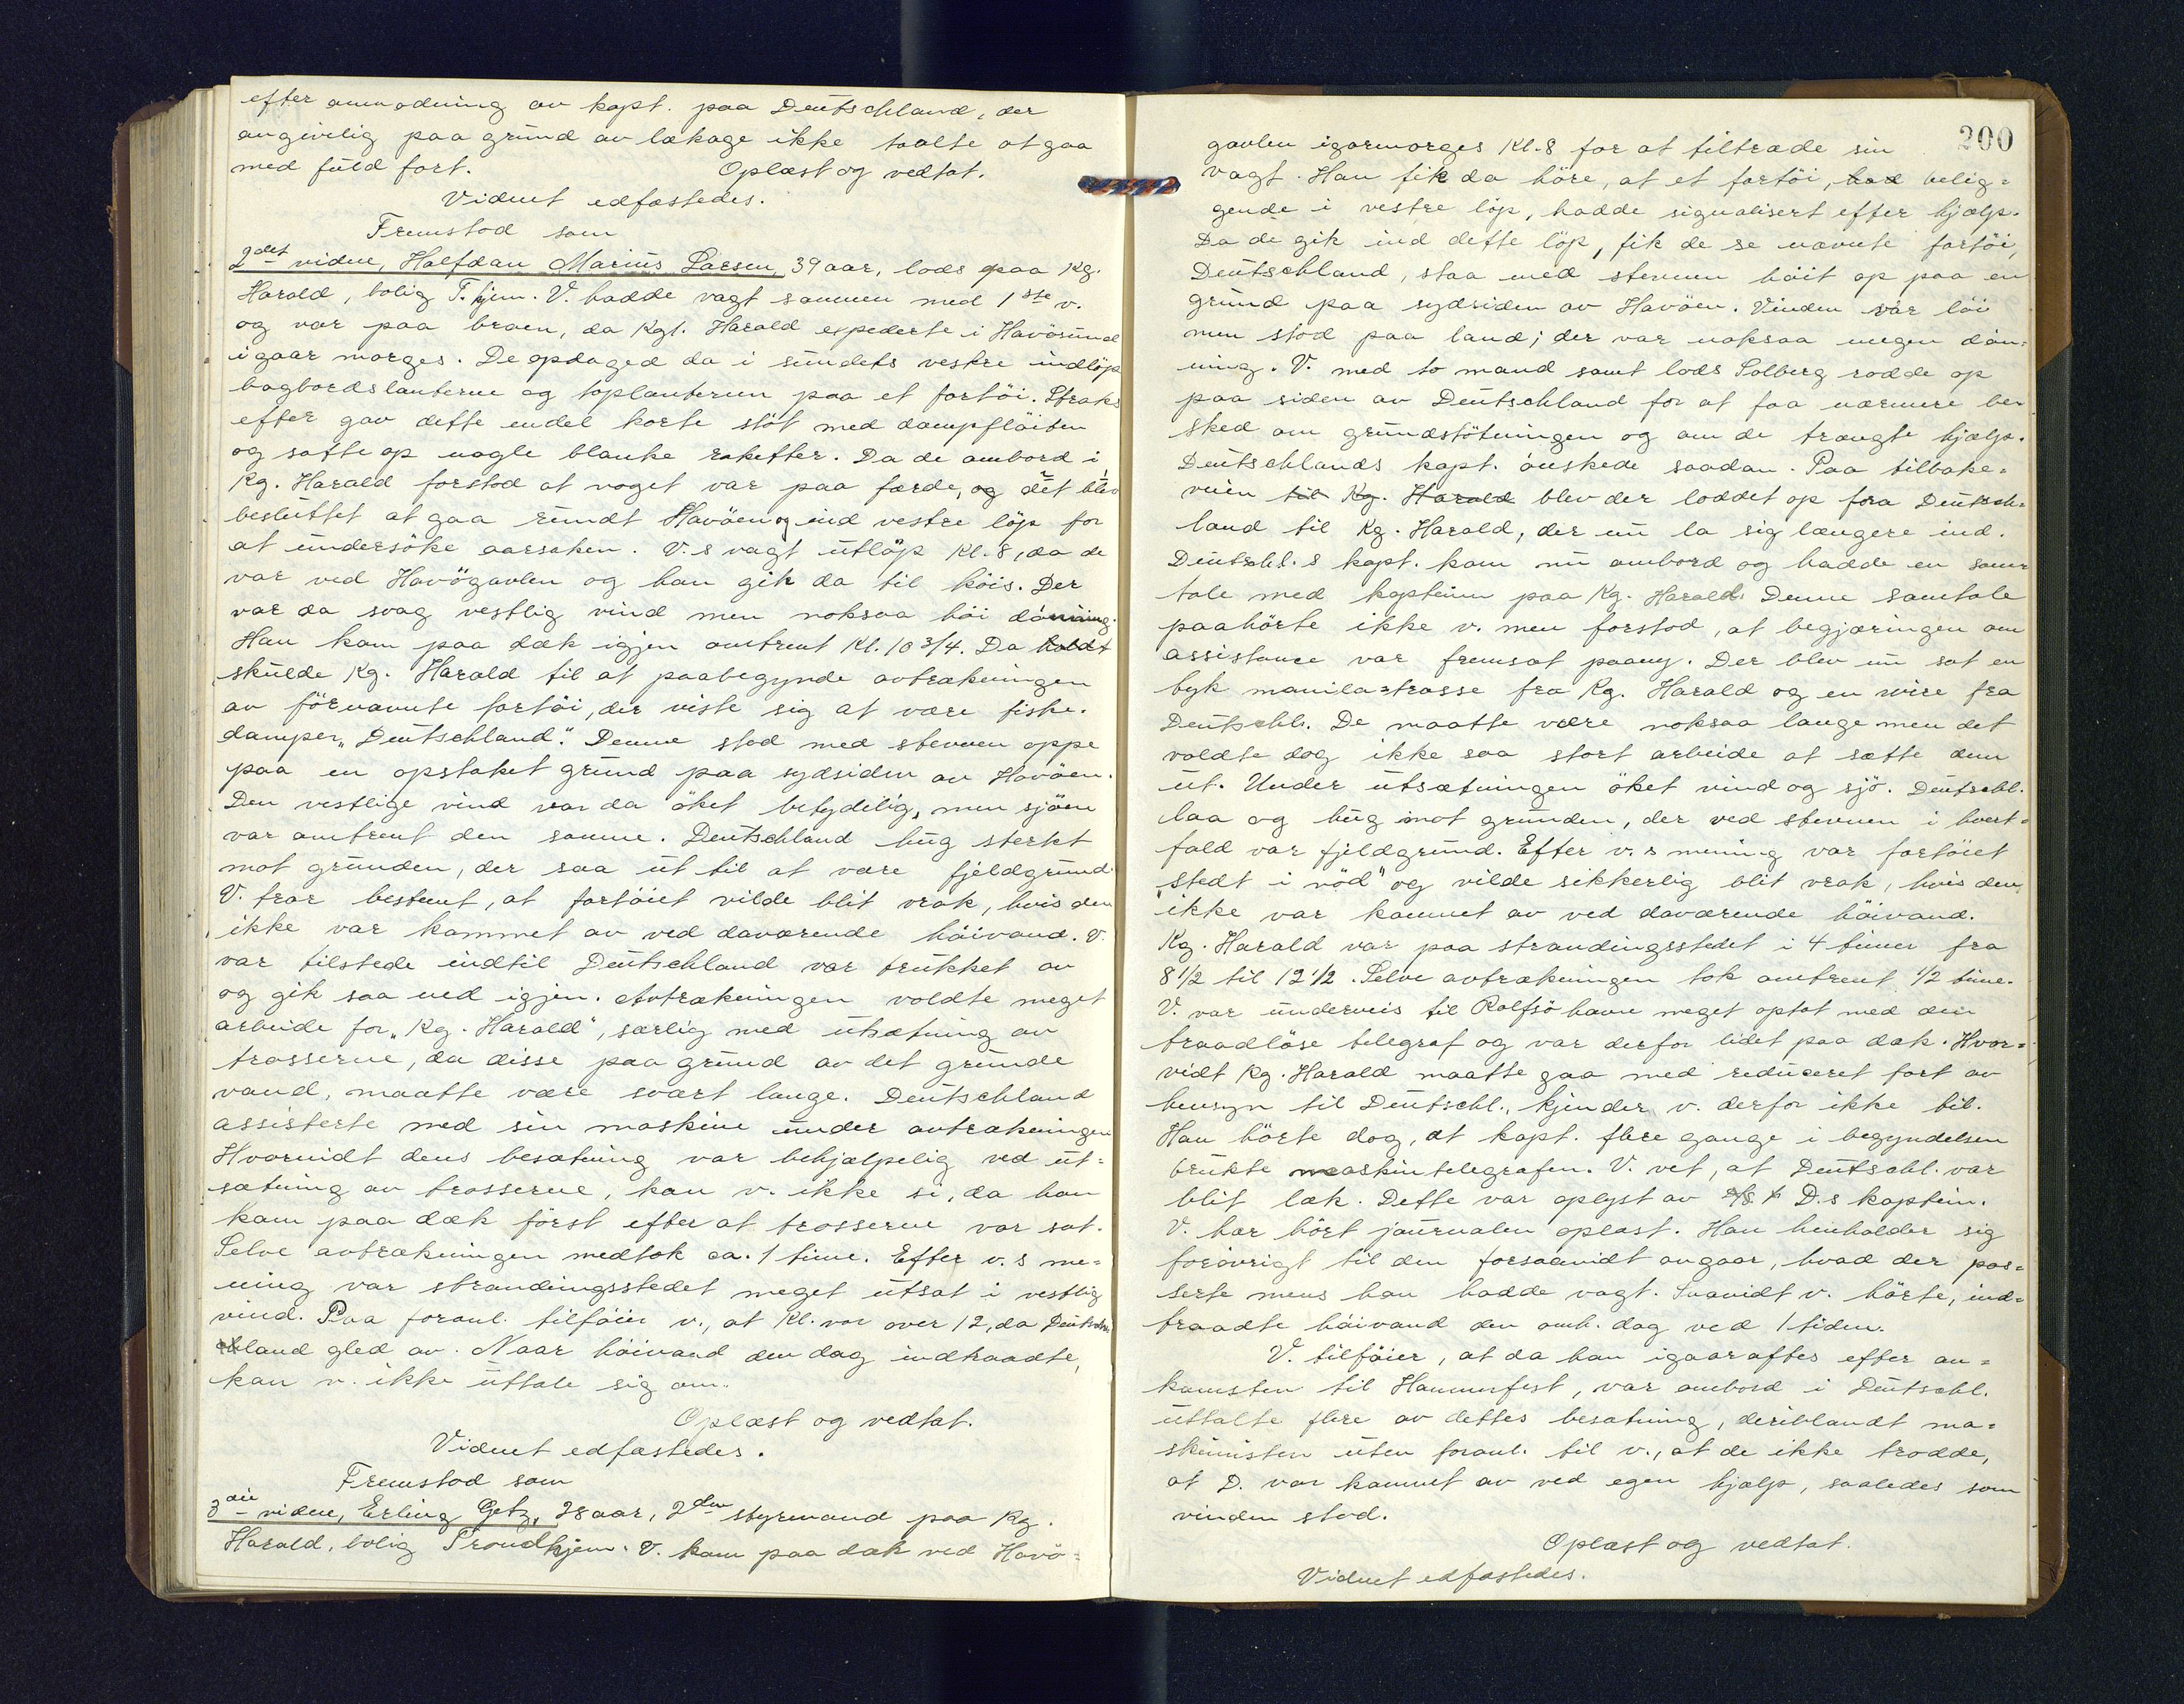 efter anmodning av kapt. paa Deutschland, der
angivelig paa grund av lækage ikke taalte at gaa
med fuld fart. Oplæst og vedtat.
Vidnet edfæstedes.
Fremstod som
2det vidne, Halfdan Marius Larsen, 39 aar, lods paa Kg.
Harald, bolig T.hjem. V. hadde vagt sammen med 1ste v.
og var paa broen, da Kg. Harald expederte i Havösund
igaar morges. De opdaged da i sundets vestre indlöp
bagbordslanterne og toplanternen paa et fartöi. Straks
efter gav dette endel korte stöt med dampflöiten
og satte op nogle blanke raketter. Da de ombord i
Kg. Harald forstod at noget var paa færde, og det blev
besluttet at gaa rundt Havöen og ind vestre löp for
at undersöke aarsaken. V.s vagt utlöp Kl. 8, da de
var ved Havögavlen og han gik da til köis. Der
var da svag vestlig vind men noksaa höi dönning.
Han kom paa dæk igjen omtrent Kl. 10 3/4. Da holdt
skulde Kg. Harald til at paabegynde avtrækningen
av förnævnte fartöi, der viste sig at være fiske-
damper „Deutschland". Denne stod med stevnen oppe
paa en opstaket grund paa sydsiden av Havöen.
Den vestlige vind var da öket betydelig, men sjöen
var omtrent den samme. Deutschland hug sterkt
mot grunden, der saa ut til at være fjeldgrund.
V. tror bestemt, at fartöiet vilde blit vrak, hvis den
ikke var kommet av ved daværende höivand. V.
var tilstede indtil Deutschland var trukket av
og gik saa ned igjen. Avtrækningen voldte meget
arbeide for „Kg. Harald", særlig med utsætning av
trosserne, da disse paa grund av det grunde
vand, maatte være svært lange. Deutschland
assisterte med sin maskine under avtrækningen
Hvorvidt dens besætning var behjælpelig ved ut-
sætning av trosserne, kan v. ikke si, da han
kom paa dæk först efter at trosserne var sat.
Selve avtrækningen medtok ca. 1 time. Efter v.s me-
ning var strandingsstedet meget utsat i vestlig
vind. Paa foranl. tilföier v., at Kl. var over 12, da Deutsch-
land gled av. Naar höivand den dag indtraadte,
kan v. ikke uttale sig om.
Oplæst og vedtat.
Vidnet edfæstedes.
Fremstod som
3die vidne, Erling Getz, 28 aar, 2den styrmand paa Kg.
Harald, bolig Trondhjem. V. kom paa dæk ved Havö-
200
gavlen igaarmorges Kl. 8 for at tiltræde sin
vagt. Han fik da höre, at et fartöi, had belig-
gende i vestre löp, hadde signalisert efter hjælp.
Da de gik ind dette löp, fik de se nævnte fartöi,
Deutschland, staa med stevnen höit op paa en
grund paa sydsiden av Havöen. Vinden var löi
men stod paa land; der var noksaa megen dön-
ning. V. med to mand samt lods Solberg rodde op
paa siden av Deutschland for at faa nærmere be-
sked om grundstötningen og om de trængte hjælp.
Deutschlands kapt. önskede saadan. Paa tilbake-
veien til Kg. Harald blev der loddet op fra Deutsch-
land til Kg. Harald, der nu la sig længere ind.
Deutschl.s kapt. kom nu ombord og hadde en sam-
tale med kaptein paa Kg. Harald. Denne samtale
paahörte ikke v. men forstod, at begjæringen om
assistance var fremsat paany. Der blev nu sat en
tyk manila-trosse fra Kg. Harald og en wire fra
Deutschl. De maatte være noksaa lange men det
voldte dog ikke saa stort arbeide at sætte dem
ut. Under utsætningen öket vind og sjö. Deutschl.
laa og hug mot grunden, der ved stevnen i hvert-
fald var fjeldgrund. Efter v.s mening var fartöiet
"stedt i nöd" og vilde sikkerlig blit vrak, hvis den
ikke var kommet av ved daværende höivand.
Kg. Harald var paa strandingsstedet i 4 timer fra
8 1/2 til 12 1/2. Selve avtrækningen tok omtrent 1/2 time.
V. var underveis til Rolfsöhavn meget optat med den
traadlöse telegraf og var derfor lidet paa dæk. Hvor-
vidt Kg. Harald maatte gaa med reduceret fart av
hensyn til Deutschl., kjender v. derfor ikke til.
Han hörte dog, at kapt. flere gange i begyndelsen
brukte maskintelegrafen. V. vet, at Deutschl. var
blit læk. Dette var oplyst av D.s kaptein.
V. har hört journalen oplæst. Han henholder sig
forövrigt til den forsaavidt angaar, hvad der pas-
serte mens han hadde vagt. Saavidt v. hörte, ind-
traadte höivand den omh. dag ved 1 tiden.
V. tilföier, at da han igaaraftes efter an-
komsten til Hammerfest, var ombord i Deutschl.
uttalte flere av dettes besætning, deriblandt ma-
skinisten uten foranl. til v., at de ikke trodde,
at D. var kommet av ved egen hjælp, saaledes som
vinden stod.
Oplæst og vedtat.
Vidnet edfæstedes.